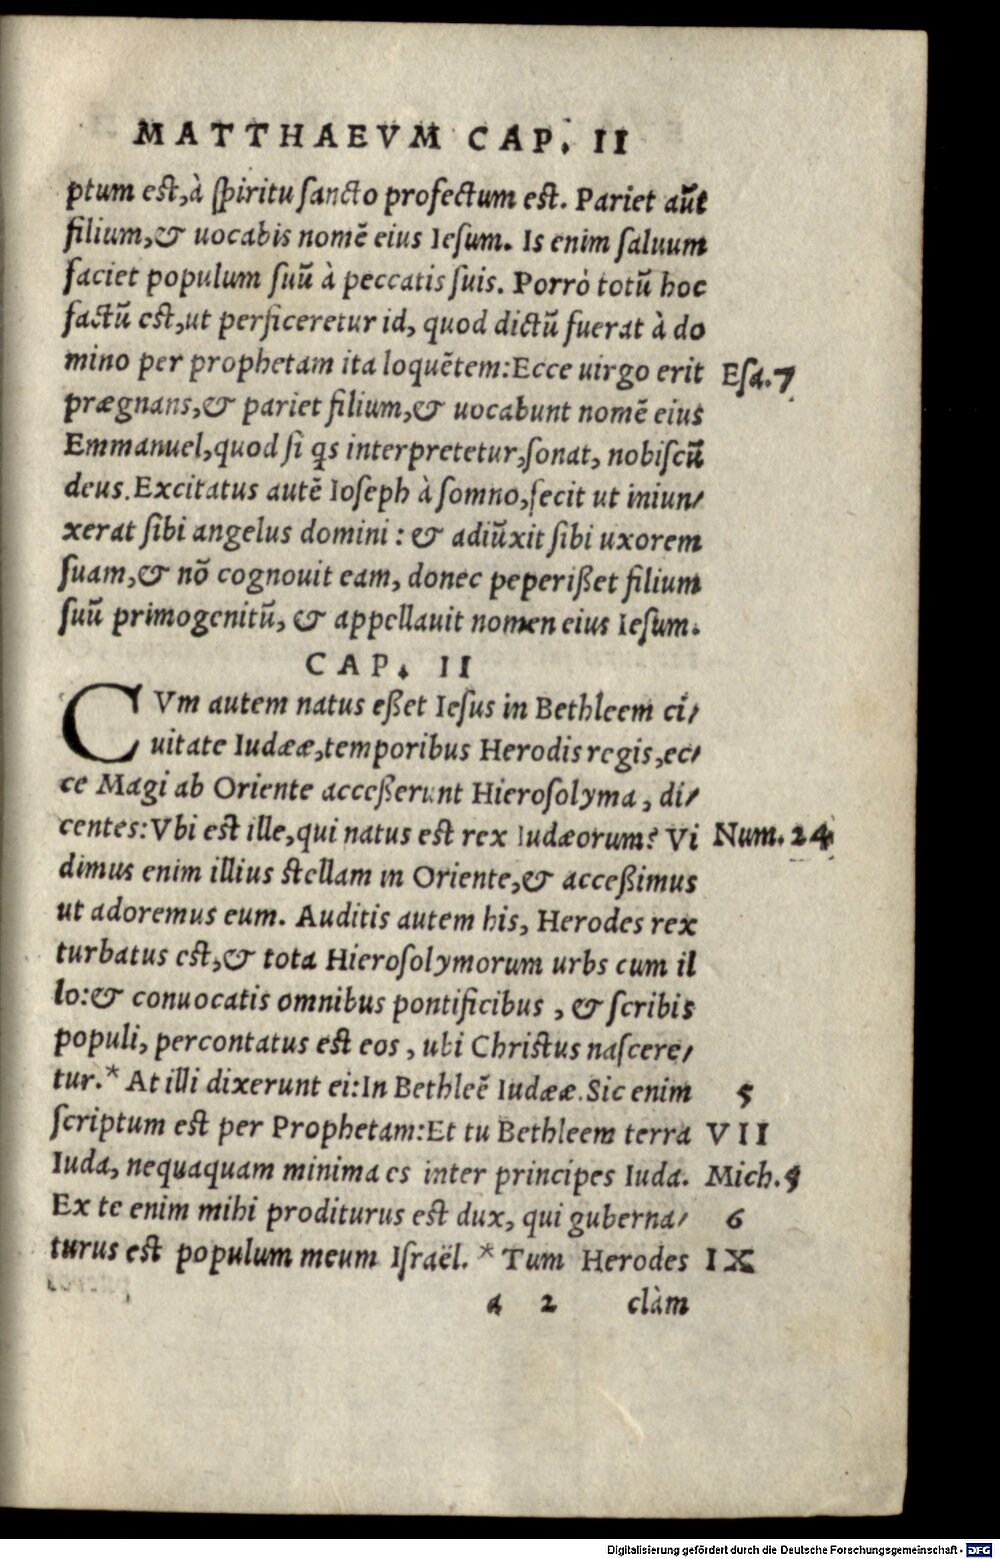 MATTHAEVM CAP. II
ptum est, à spiritu sancto profectum est. Pariet aūt
filium, & uocabis nomē eius Iesum. Is enim saluum
faciet populum suū à peccatis suis. Porrò totū hoc
factū est, ut perficeretur id, quod dictū fuerat à do
mino per prophetam ita loquētem: Ecce uirgo erit Esa. 7
prægnans, & pariet filium, & uocabunt nomē eius
Emmanuel, quod si qs interpretetur, sonat, nobiscū
deus. Excitatus autē Ioseph à somno, fecit ut iniun/
xerat sibi angelus domini : & adiūxit sibi uxorem
suam, & nō cognouit eam, donec peperißet filium
suū primogenitū, & appellauit nomen eius Iesum.
CAP. II
CVm autem natus eßet Iesus in Bethleem ci/
uitate Iudææ, temporibus Herodis regis, ec/
ce Magi ab Oriente acceßerunt Hierosolyma, di/
centes: Vbi est ille, qui natus est rex Iudæorum? Vi Num. 24
dimus enim illius stellam in Oriente, & acceßimus
ut adoremus eum. Auditis autem his, Herodes rex
turbatus est, & tota Hierosolymorum urbs cum il
lo: & conuocatis omnibus pontificibus, & scribis
populi, percontatus est eos, ubi Christus nascere/
tur.* At illi dixerunt ei: In Bethleē Iudææ. Sic enim 5
scriptum est per Prophetam: Et tu Bethleem terra VII
Iuda, nequaquam minima es inter principes Iuda. Mich. 5
Ex te enim mihi proditurus est dux, qui guberna/ 6
turus est populum meum Israël. * Tum Herodes IX
a 2 clàm
Digitalisierung gefördert durch die Deutsche Forschungsgemeinschaft - DFG